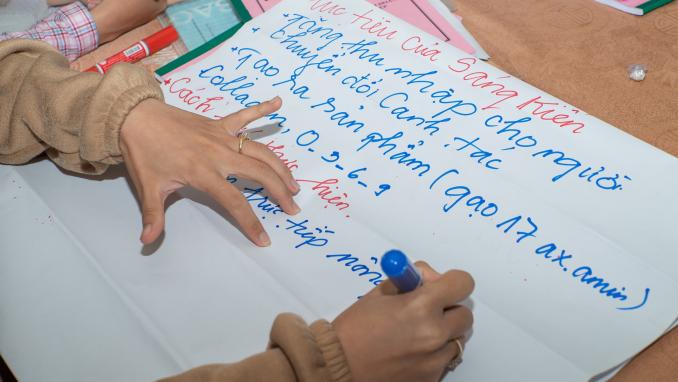 BÁC
ục tiêu của Sáng Kiến
+ Tăng thu nhập cho người
+ Chuyển đổi Canh tác
+ Tạo ra sản phẩm (gạo 17 ax.amin)
Collagen, 0-3-6-9
+ Cách thực hiện.
trực tiếp nông